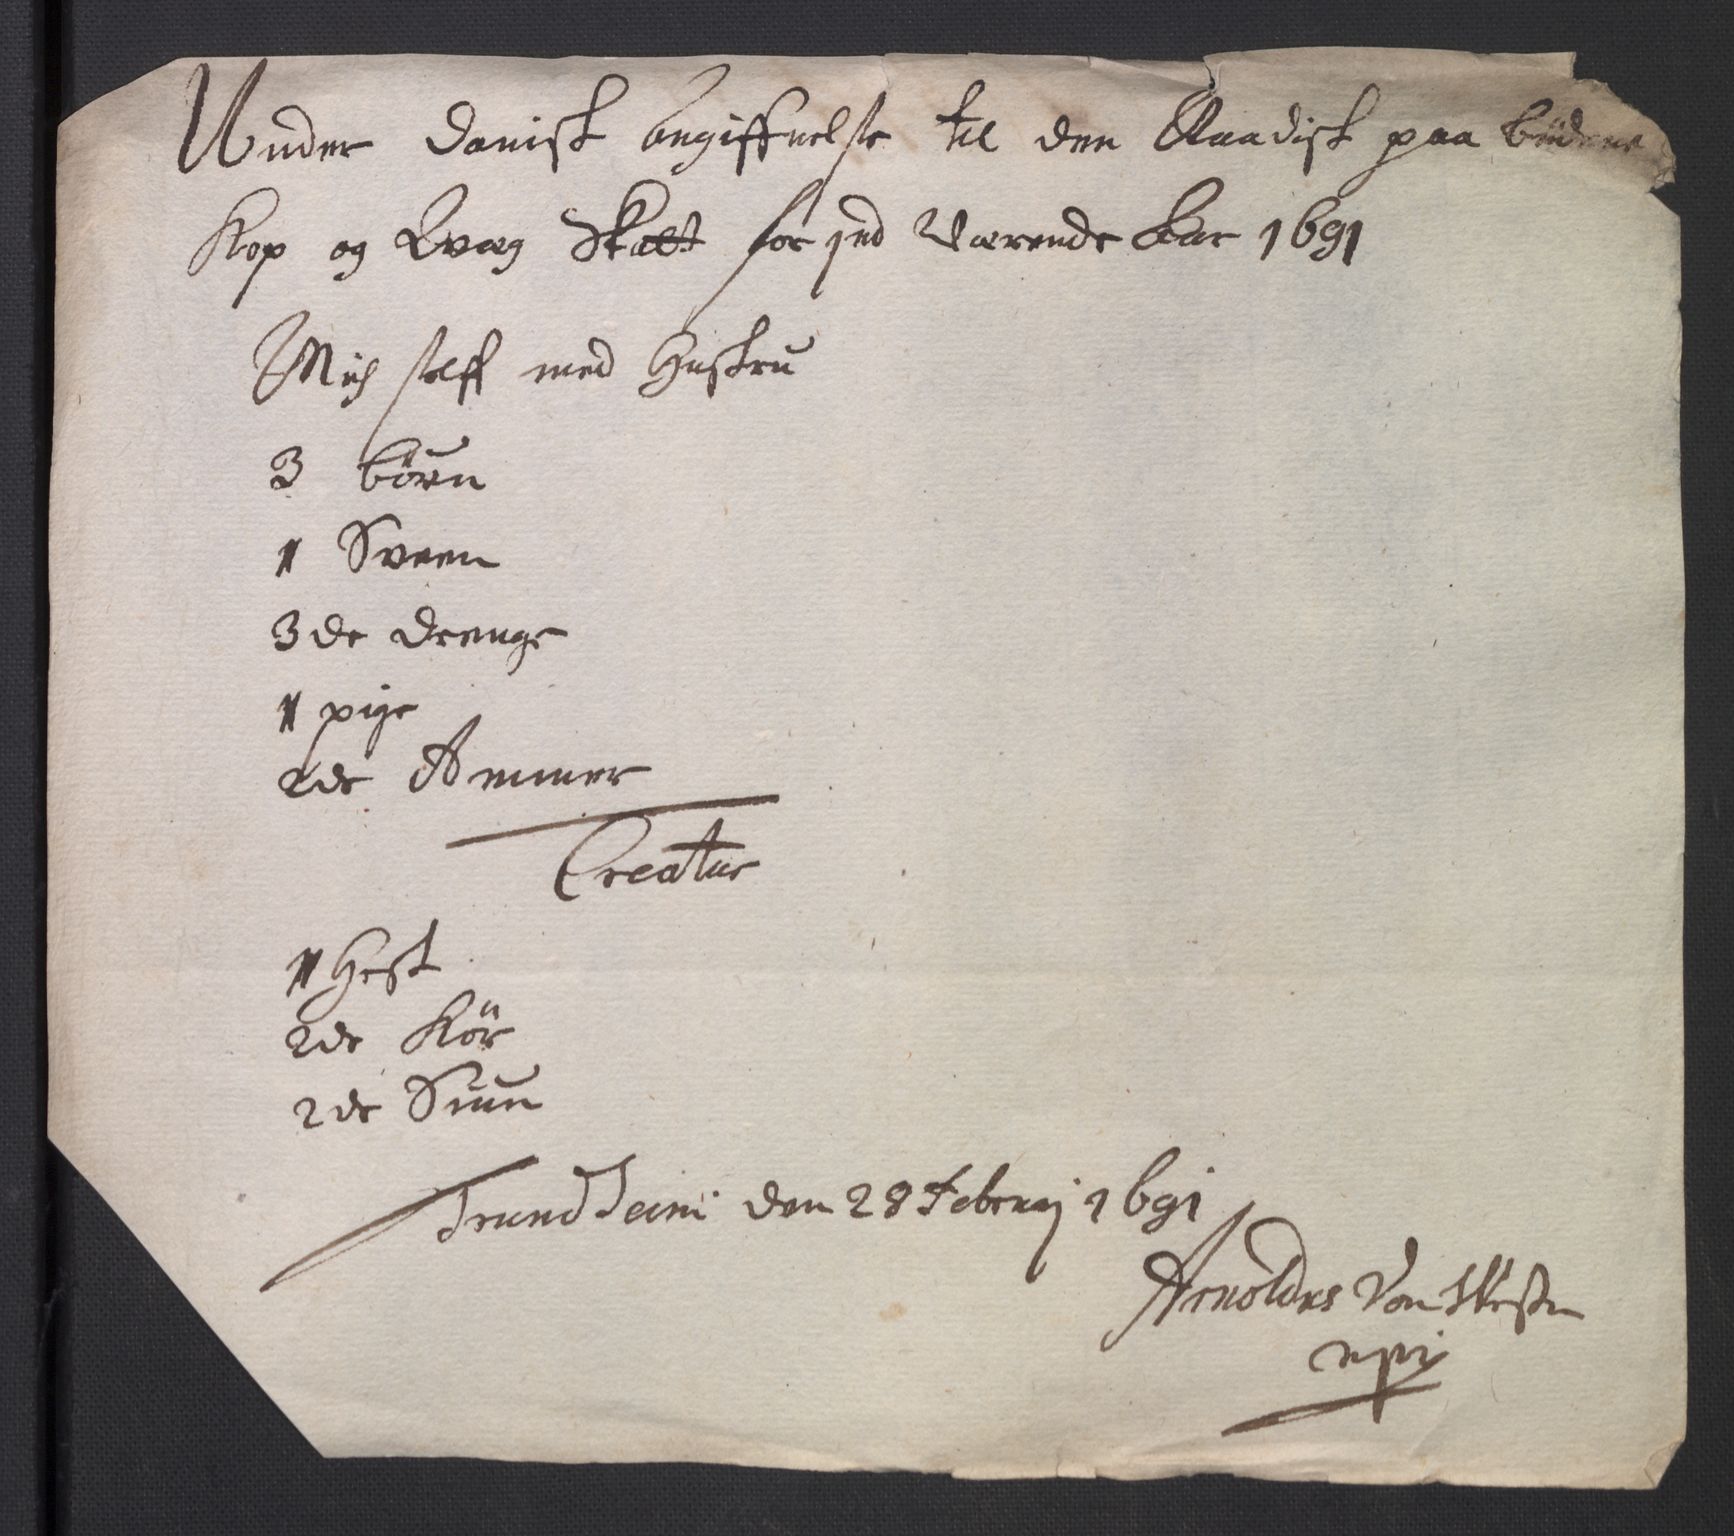 Under Danisk Angiffuelse til den Naadist paa büdene
Kop og Qvæg Skatt for ind Værende Aar 1691
Mig self med Hustru
3 börn
1 Sveen
3 de drenge
1 pige
2de Ammer
Creatur
1 Hest
2de Kör
2de Suun
Trundheim den 28 Februarj 1691
Arnoldus Von Westen
mpr